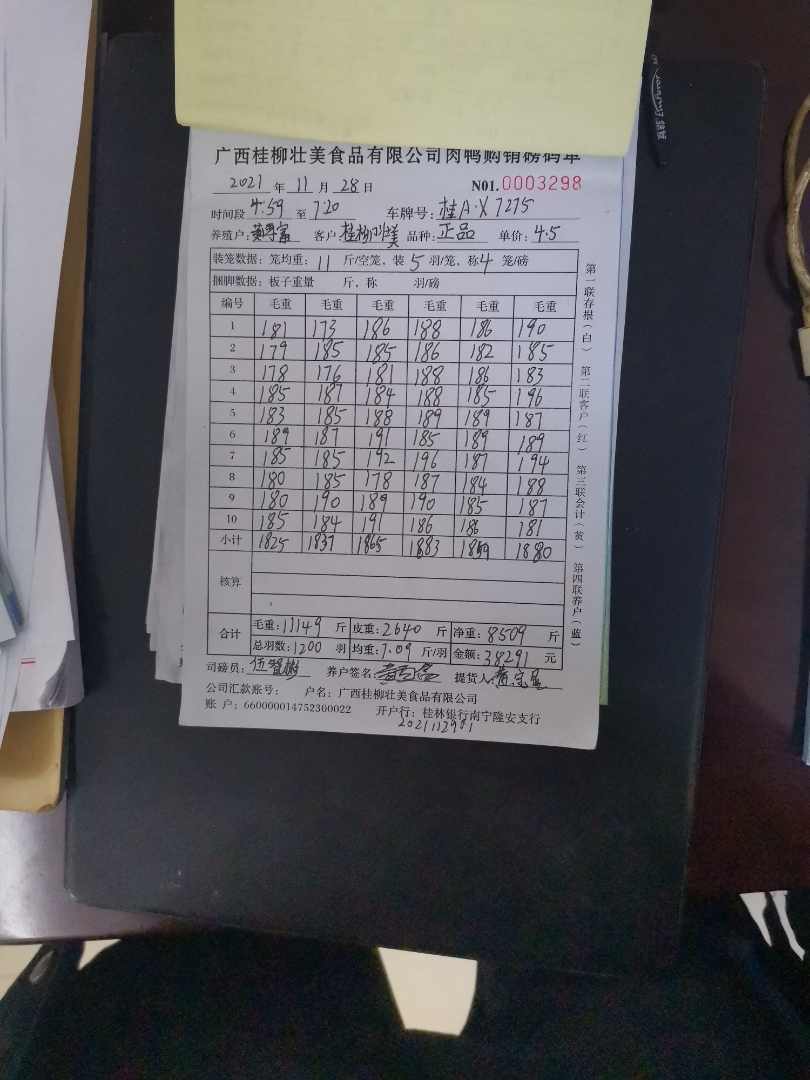 广西桂柳壮美食品有限公司肉鸭购销磅码单
2021 年 11 月 28 日 N01.0003298
时间段 4:59 至 7:20 车牌号: 桂A·X7275
养殖户: 客户: 桂柳壮美 品种: 正品 单价: 4.5
装笼数据: 笼均重: 11 斤/空笼, 装 5 羽/笼, 称 4 笼/磅
捆脚数据: 板子重量 斤, 称 羽/磅
编号 毛重 毛重 毛重 毛重 毛重 毛重
1 181 173 186 188 186 190
2 179 185 185 186 182 185
3 178 176 181 188 186 183
4 185 187 184 188 185 196
5 183 185 188 189 189 187
6 189 187 191 185 189 189
7 185 185 192 196 187 194
8 180 185 178 187 184 188
9 180 190 189 190 185 187
10 185 184 191 186 186 181
小计 1825 1837 1865 1883 1859 1880
核算
合计 毛重: 11149 斤 皮重: 2640 斤 净重: 8509 斤
总羽数: 1200 羽 均重: 7.09 斤/羽 金额: 38291 元
司磅员: 养户签名: 提货人:
公司汇款账号: 户名: 广西桂柳壮美食品有限公司
账 户: 660000014752300022 开户行: 桂林银行南宁隆安支行
2021112901
第一联存根(白) 第二联客户(红) 第三联会计(黄) 第四联养户(蓝)